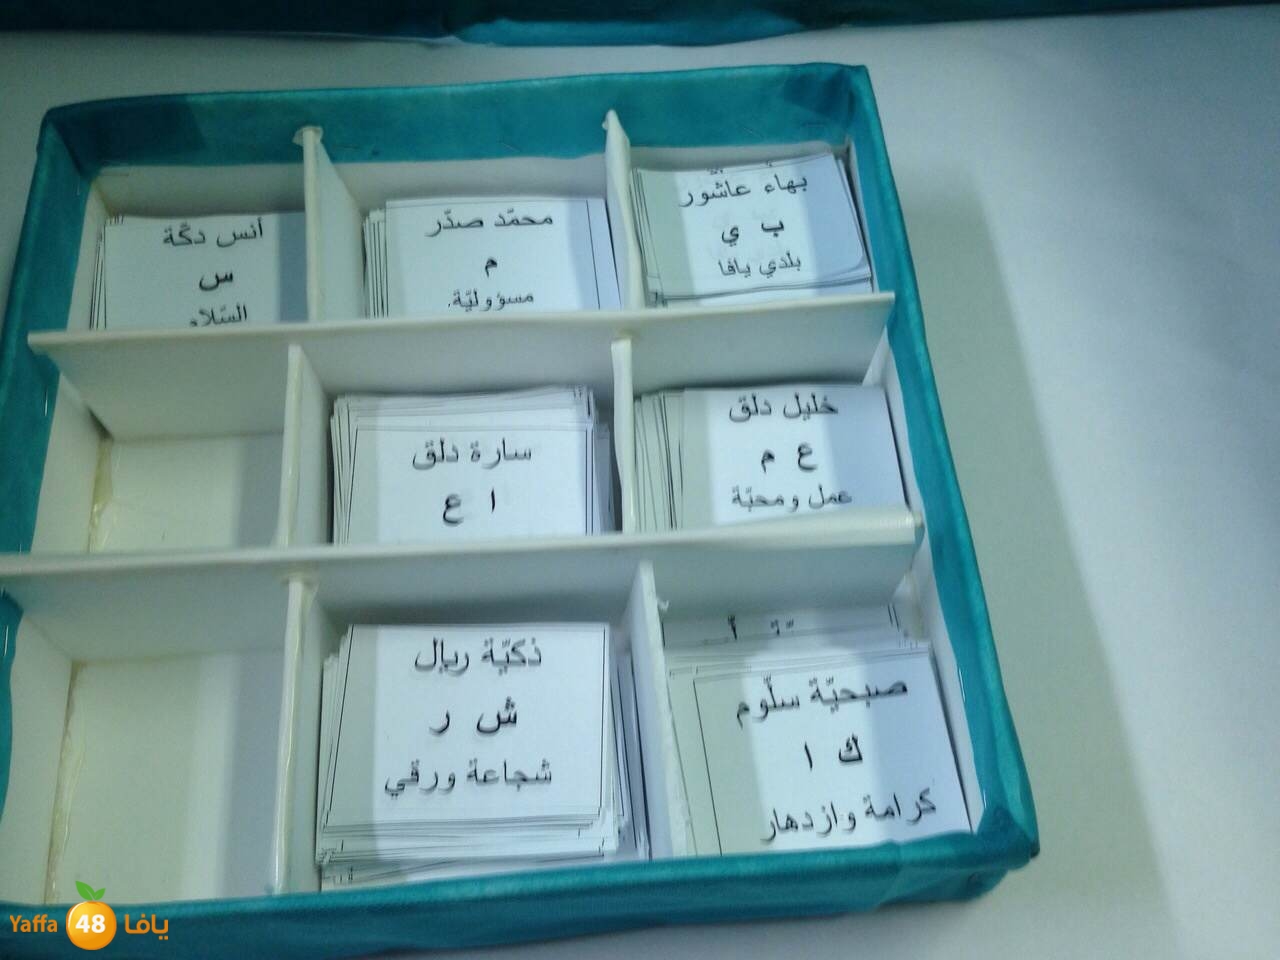 بهاء عاشور
ب ي
بلدي يافا
محمّد صدّر
م
مسؤوليّة.
أنس دكّة
س
السّلام
خليل دلق
ع م
عمل ومحبّة
سارة دلق
ا ع
صبحيّة سلّوم
ك ا
كرامة وازدهار
ذكيّة ريال
ش ر
شجاعة ورقي
Yaffa 48 يافا